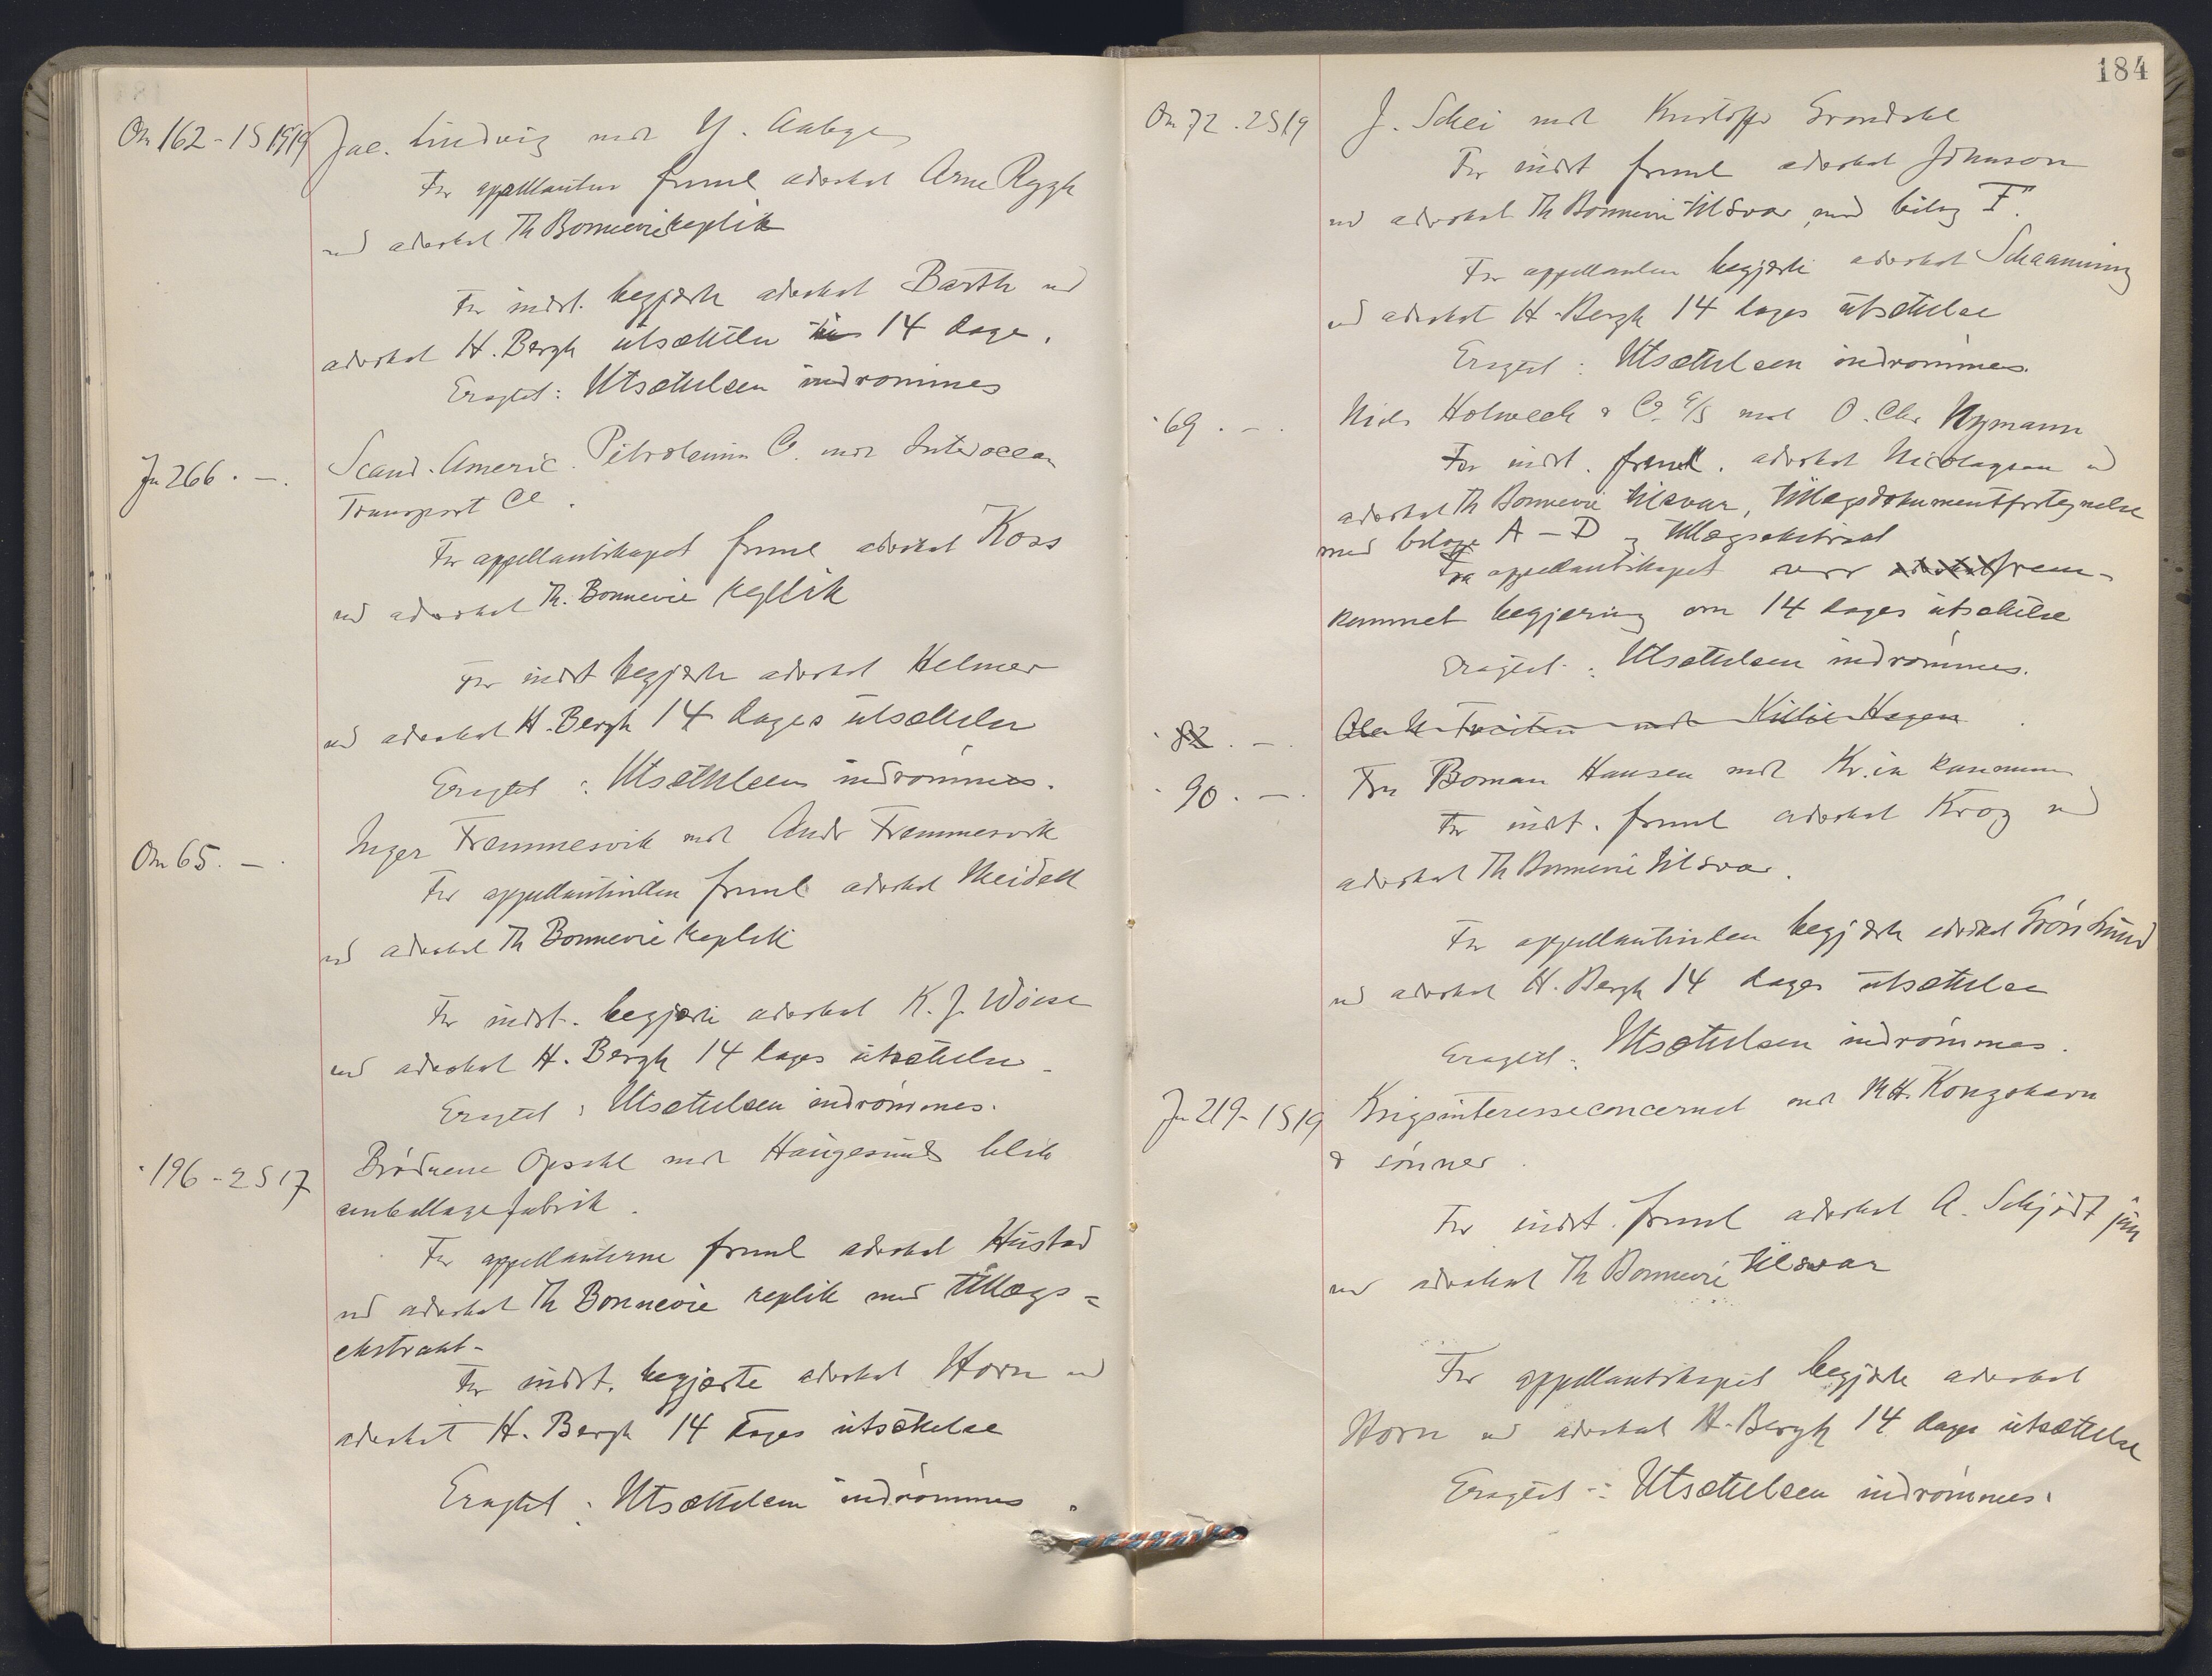 On 162 - 1S 1919 Jac. Lindvig mot Y. Aaberge
For appellanten freml advokat Arne Rygh
ved advokat Th Bonnevie replik
For indst. begjærte advokat Barth ved
advokat H. Bergh utsættelse 14 dage.
Eragtet: Utsættelsen indrømmes
Jn 266 . — . Scand. Americ. Petroleum Co. mot Interocean
Transport Co.
For appellantskapet freml advokat Koss
ved advokat Th. Bonnevie replik
For indst begjærte advokat Helmer
ved advokat H. Bergh 14 dages utsættelse
Eragtet : Utsættelsen indrømmes.
On 65. — . Inger Fræmmesvik mot Andr Fræmmesvik
For appellantinden freml advokat Meidell
ved advokat Th Bonnevie replik
For indst. begjærte advokat K. J. Wiese
ved advokat H. Bergh 14 dages utsættelse.
Eragtet : Utsættelsen indrømmes.
" 196 - 2S 17 Brødrene Opsahl mot Haugesunds blik
emballagefabrik.
For appellanterne freml advokat Hustad
ved advokat Th Bonnevie replik med tillægs=
ekstrakt-
For indst. begjærte advokat Horn ved
advokat H. Bergh 14 dages utsættelse
Eragtet : Utsættelsen indrømmes.
184
On 72 . 2S 19 J. Schei mot Kristoffer Grøndahl
For indst freml advokat Johnson
ved advokat Th Bonnevie tilsvar med bilag I".
For appellanten begjærte advokat Schaanning
ved advokat H. Bergh 14 dages utsættelse
Eragtet : Utsættelsen indrømmes.
" 69 . — . Niels Holweck & Co. A/S mot O. Chr Nymann
For indst. freml. advokat Nicolaysen ved
advokat Th Bonnevie tilsvar, tillægsdokumentfortegnelse
med bilage A - D og tillægsekstrakt
Fra appellantskapet var frem-
kommet begjæring om 14 dages utsættelse
Eragtet : Utsættelsen indrømmes.
" 82 . — . Ole N Tveiten mot Hagen
" 90 . — . Fru Boman Hansen mot Kr.ia kommune
For indst. freml advokat Krog ved
advokat Th Bonnevie tilsvar.
For appellantinden begjærte advokat Grønlund
ved advokat H. Bergh 14 dages utsættelse
Eragtet : Utsættelsen indrømmes.
Jn 219 - 1S 19 Krigsinteresseconcernet mot M. H. Kongshavn
& sønner.
For indst. freml advokat A. Schjødt jun
ved advokat Th Bonnevie tilsvar
For appellantskapet begjærte advokat
Horn ved advokat H. Bergh 14 dages utsættelse
Eragtet : Utsættelsen indrømmes.